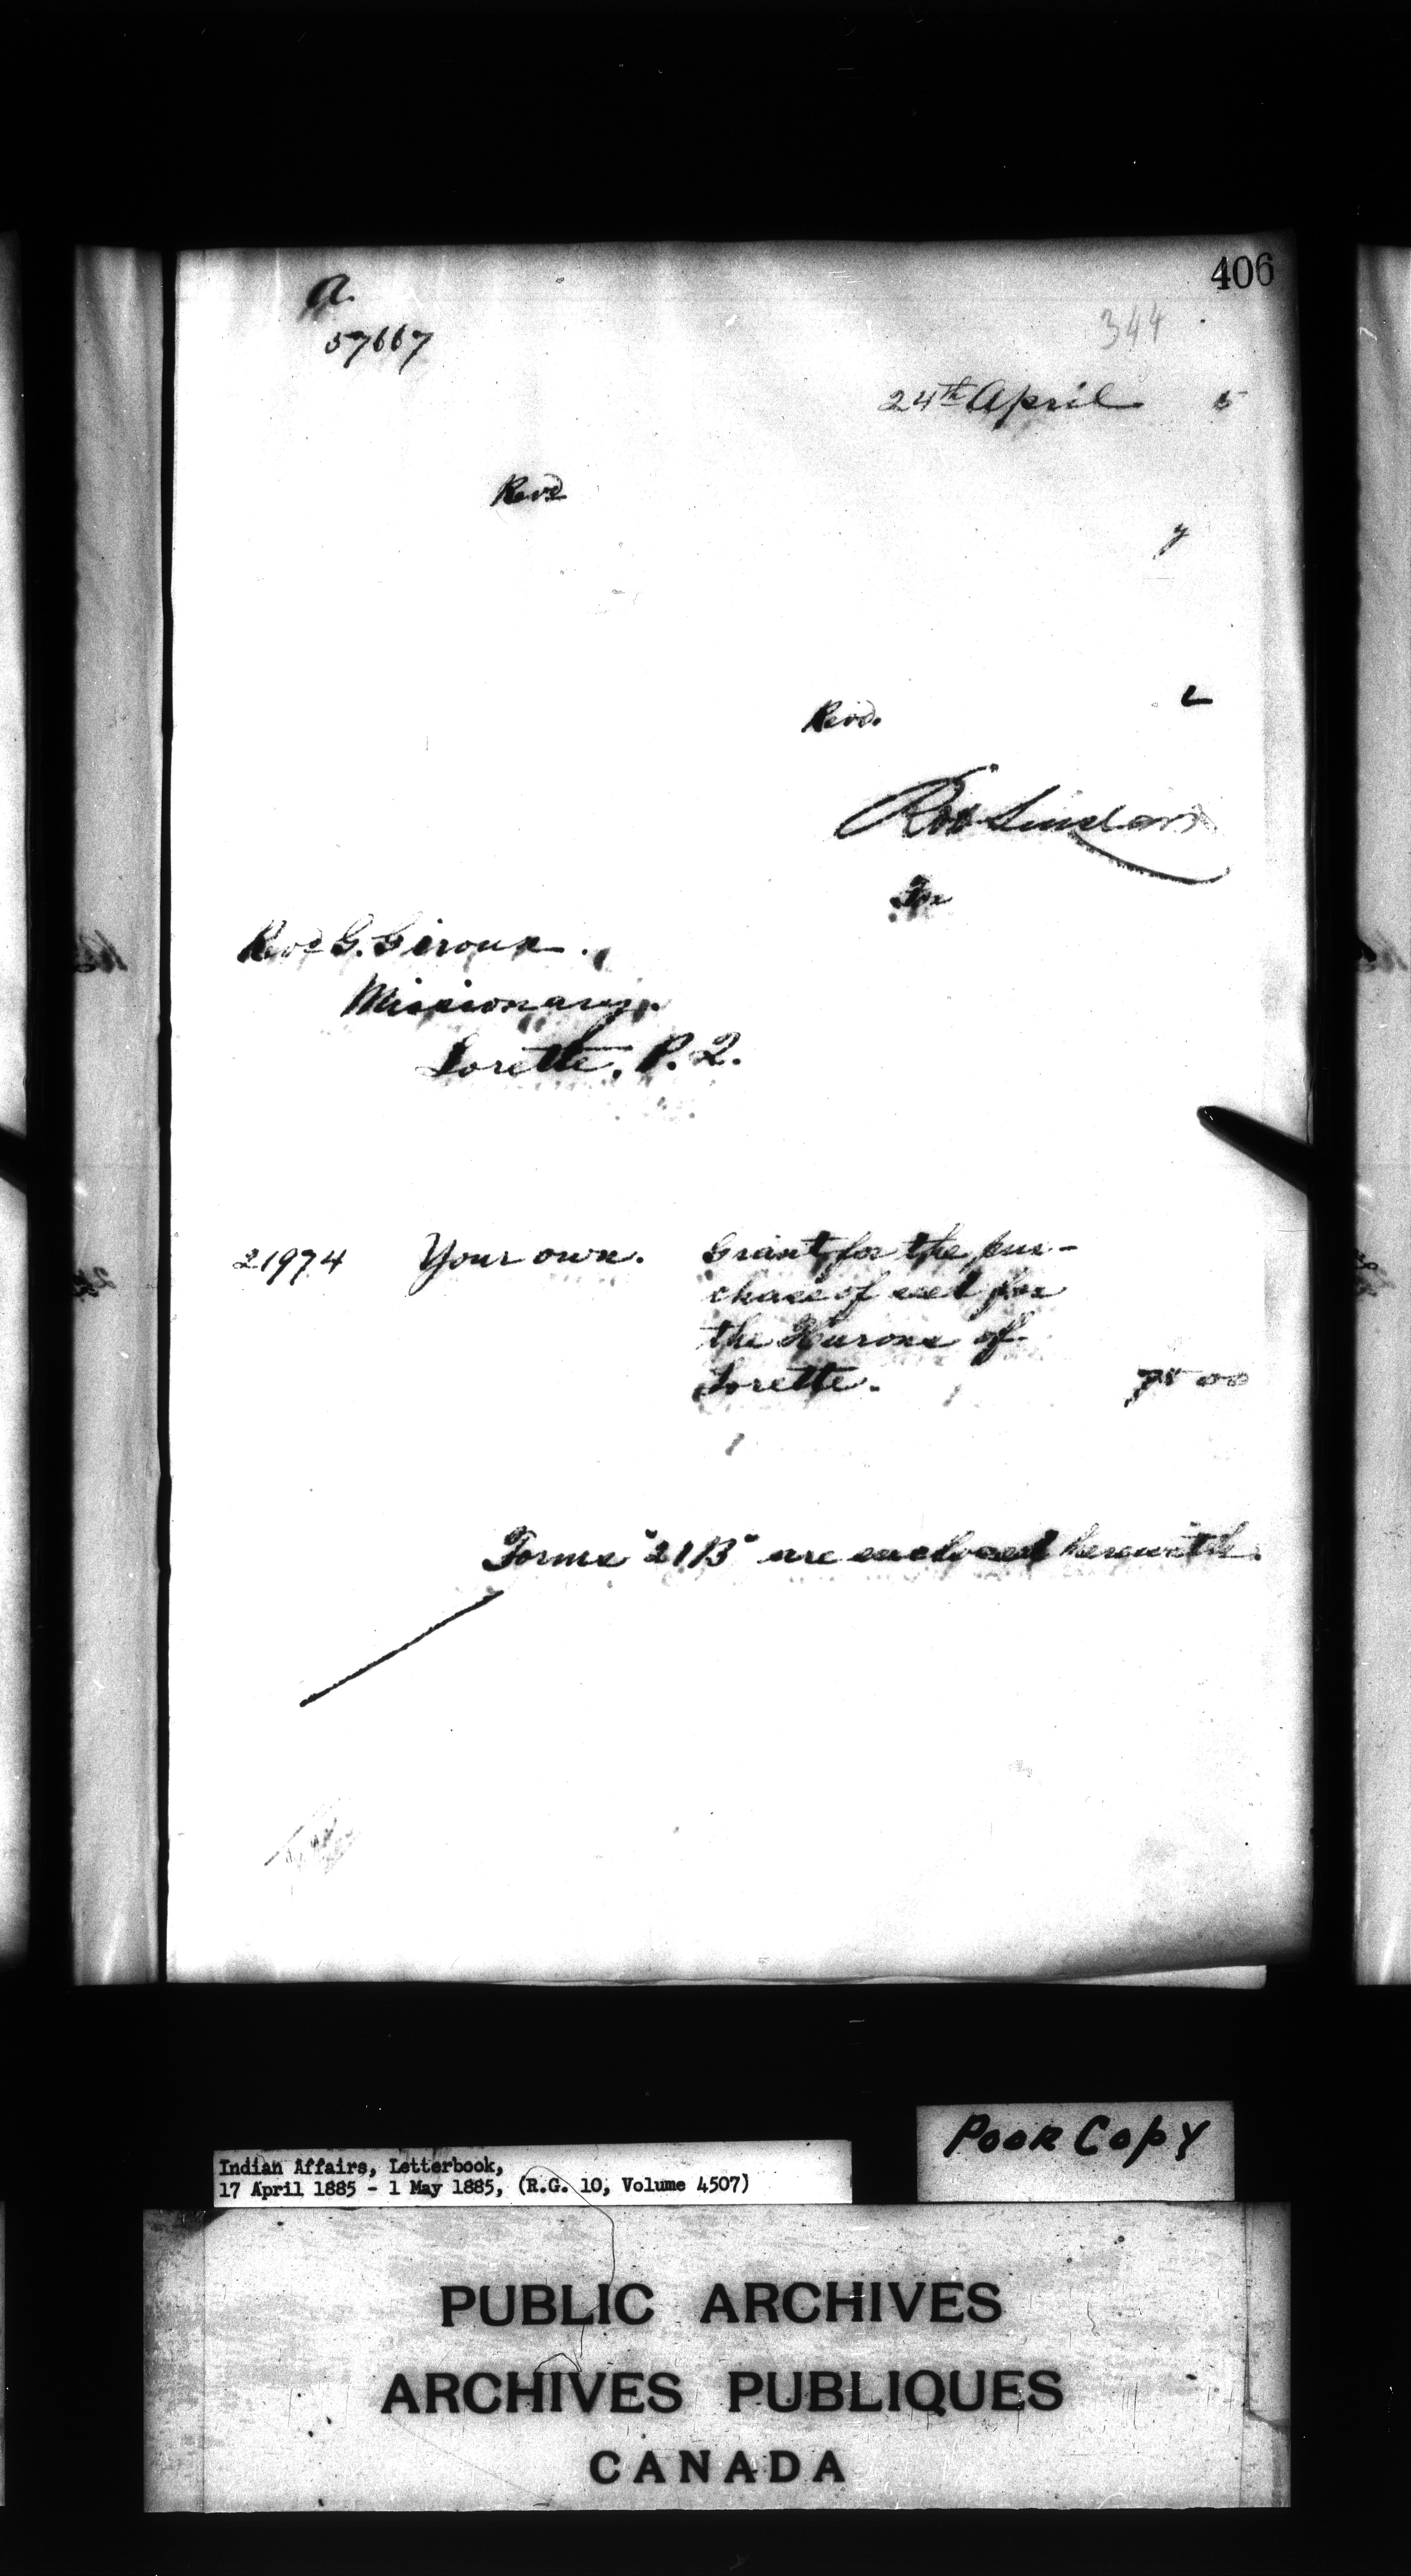 406
A.
57667
344
24th April 5
Revd
y
Revd.
Rob Sinclair
For
Revd G. Giroux.
Missionary.
Lorette, P.Q.
21974 Your own. Grant for the pur-
chase of seed for
the Hurons of
Lorette. 75 00
Forms "21B" are enclosed herewith.
Indian Affairs, Letterbook,
17 April 1885 - 1 May 1885, (R.G. 10, Volume 4507)
Poor Copy
PUBLIC ARCHIVES
ARCHIVES PUBLIQUES
CANADA